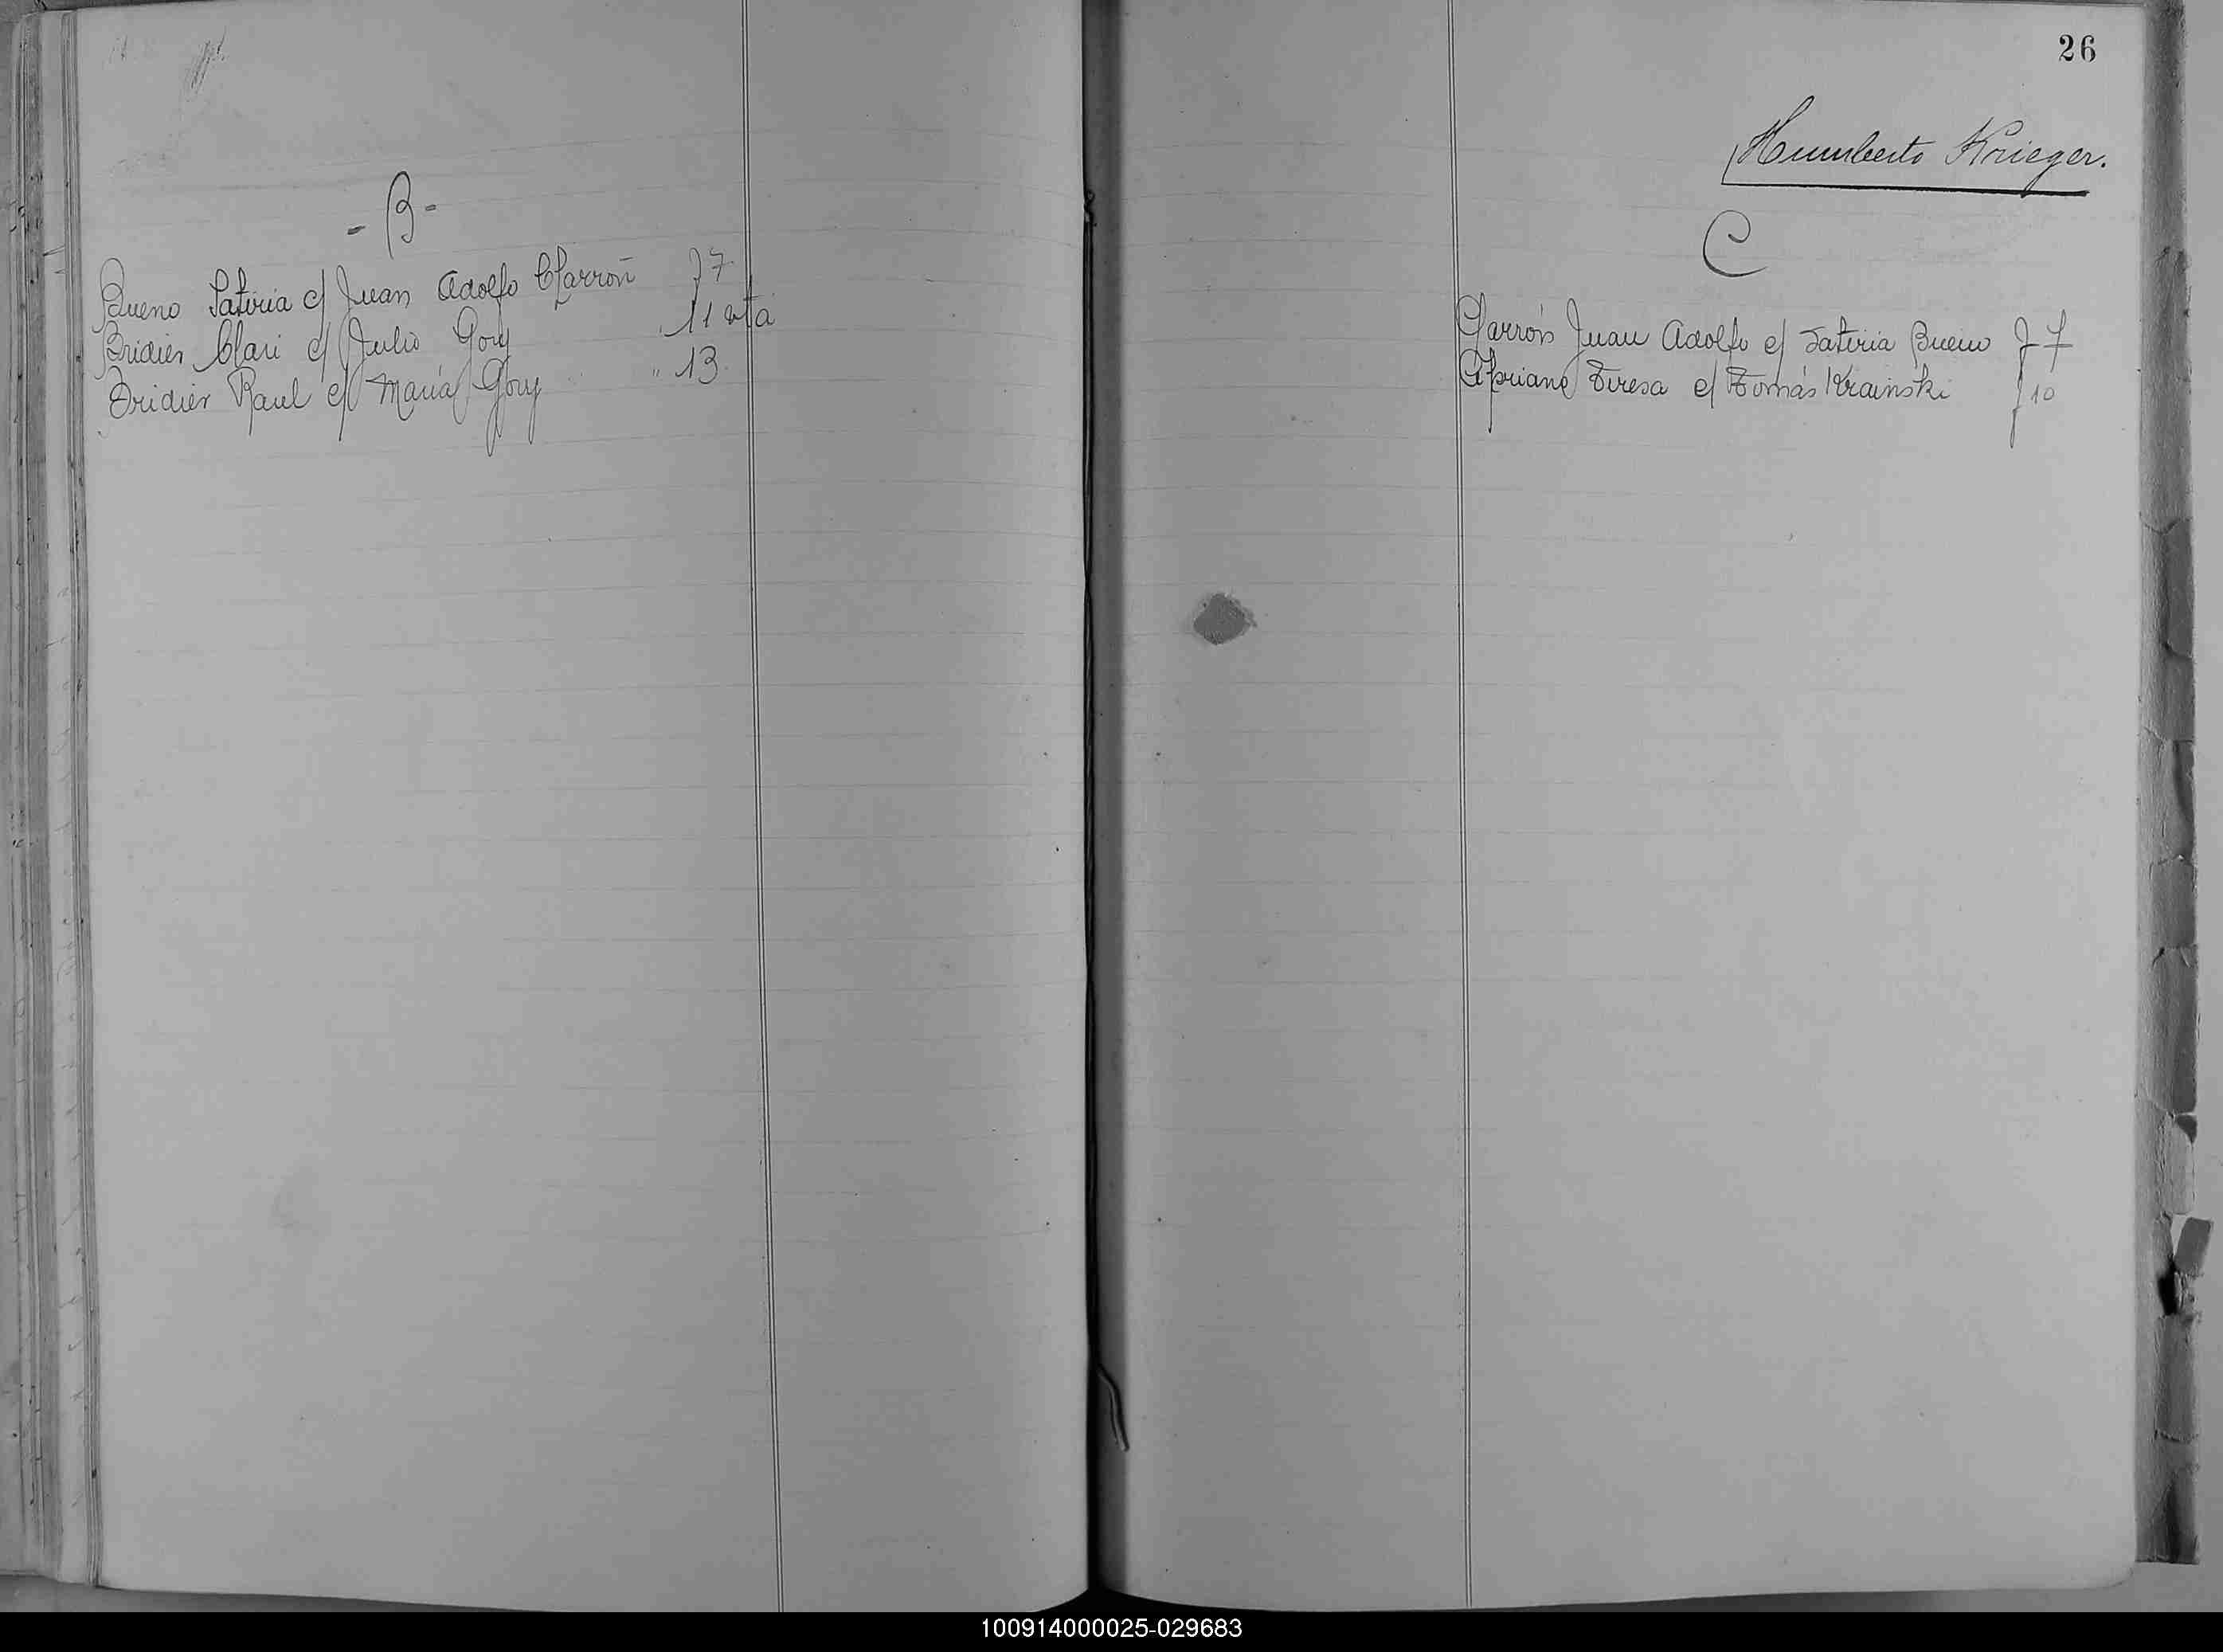 - B -
Bueno Satiria c/ Juan Adolfo Charrón f 7
Bridier Clari c/ Julio Gouy " 11 vta
Bridier Raul c/ María Gouy " 13
26
Humberto Krieger.
C
Charrón Juan Adolfo c/ Satiria Bueno f 7
Cipriano Teresa c/ Tomás Krainski f 10
100914000025-029683